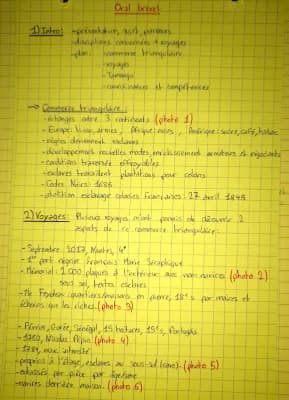 Oral brevet
1) Intro: - présentation, sujet, parcours
- disciplines concernées + voyages
- plan: commerce triangulaire
- voyages
- Tamango
- connaissances et compétences
→ Commerce triangulaire:
- échanges entre 3 continents (photo 1)
- Europe: tissus, armes, Afrique: , Amérique: sucre, café, tabac
- nègres deviennent esclaves
- développement nouvelles modes, enrichissement armateurs et négociants
- conditions traversée effroyables
- esclaves travaillent plantations pour colons
- Codes Noirs: 1685
- abolition esclavage colonies françaises: 27 avril 1848
2) Voyages: Plusieurs voyages m'ont permis de découvrir 2
aspects de ce commerce triangulaire:
- Septembre 2017, Nantes, 4e
- 1er port négrier français Marie Séraphique
- Mémorial: 2 000 plaques à l'extérieur avec nom navires (photo 2)
sous sol, textes esclaves
- Ile Feydeau: quartiers/maisons en pierre, 18e s par maires et
que les riches. (photo 3)
- Février, Gorée, Sénégal, 15 hectares, 15e s, Portugais
- Nicolas Pépin (photo 4)
- 1784,
- proprios à l'étage, esclaves au sous-sol (cave). (photo 5)
- entassés par pièce par
- navires derrière maison. (photo 6)